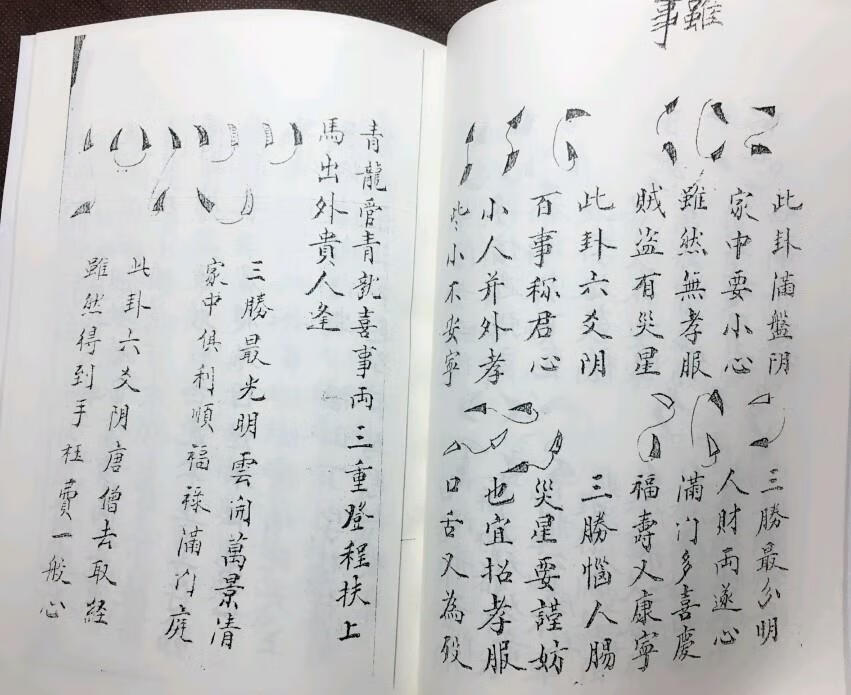 雖
事
此卦滿盤阴
家中要小心
雖然無孝服
賊盗有災星
此卦六爻阴
百事称君心
小人并外孝
些小不安寧
三勝最分明
人財両遂心
滿门多喜慶
福壽又康寧
三勝惱人腸
災星要謹妨
也宜招孝服
口舌又為殃
青龍管青就喜事両三重登程扶上
馬出外貴人逢
三勝最光明雲開萬景清
家中俱利順福祿滿门庭
此卦六爻阴唐僧去取経
雖然得到手枉費一般心